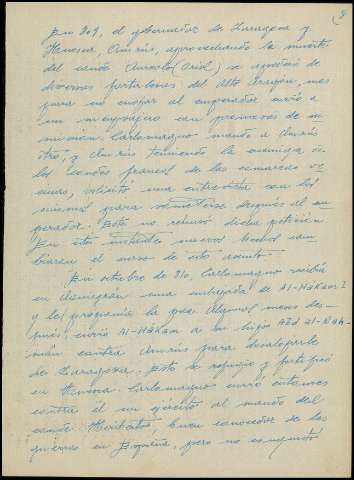 8
En 809, el gobernador de Zaragoza y
Huesca, Amrús, aprovechando la muerte
del conde Aureolo (Oriol) se apoderó de
diversas fortalezas del Alto Aragón, mas
para no enojar al emperador envió a
un mensajero con promesas de su
misión. Carlomagno mandó a Amrús
otro, y Amrús temiendo la enemiga de
los condes francos de las comarcas ve
cinas, solicitó una entrevista con los
mismos para someterse después al em
perador. Este no rehusó dicha petición.
En este instante nuevos hechos cam
biaron el curso de este asunto.
En octubre de 810, Carlomagno recibía
en Aquisgrán una embajada de Al-Hakam I
y le proponía la paz. Algunos meses des-
pués, envió Al-Hakam a su hijo Abd al-Rah-
mán contra Amrús para desalojarle
de Zaragoza. Este se refugió y fortificó
en Huesca. Carlomagno envió entonces
contra él un ejército al mando del
conde Heriberto, buen conocedor de las
guerras en España, pero no conquistó